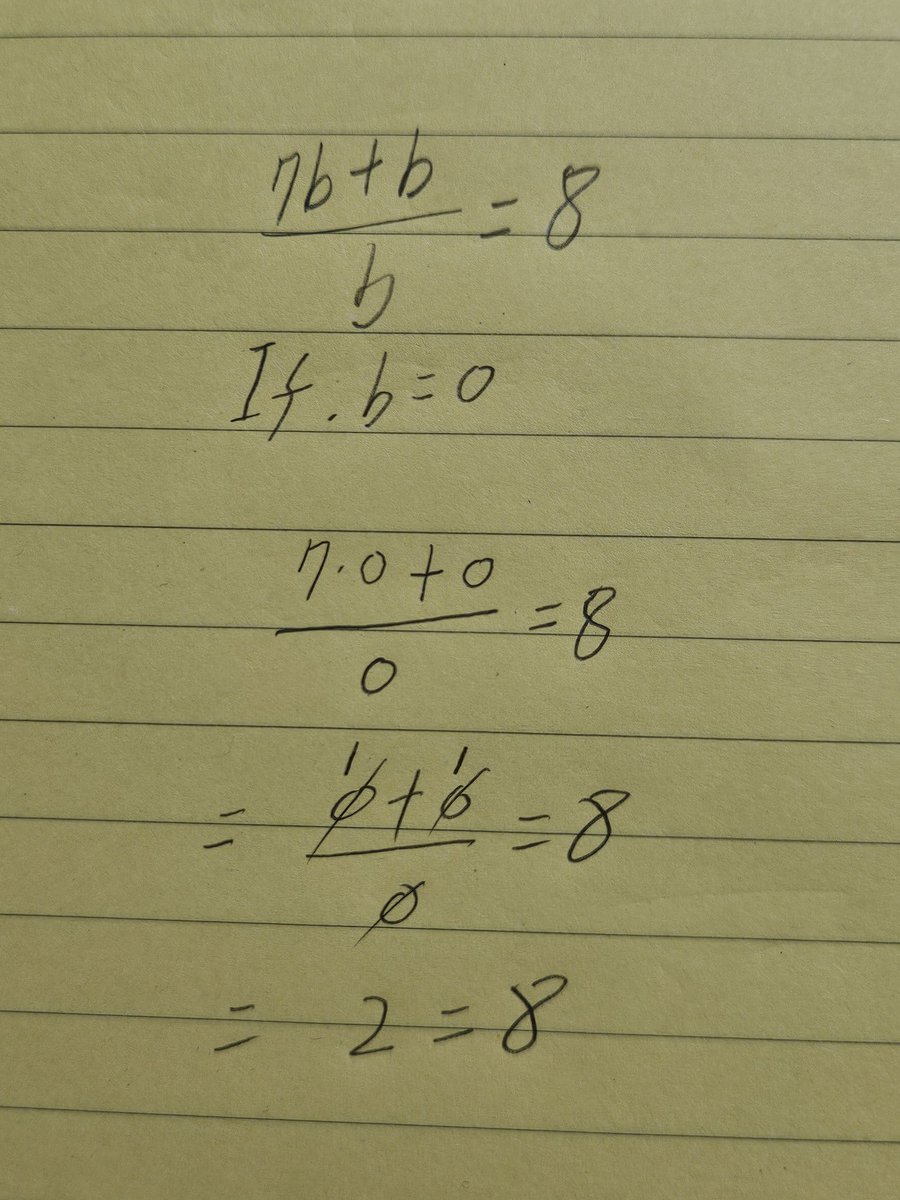 7b+b/b = 8
If. b=0
7·0+0/0 = 8
= 0̸¹+0̸¹/0̸ = 8
= 2 = 8